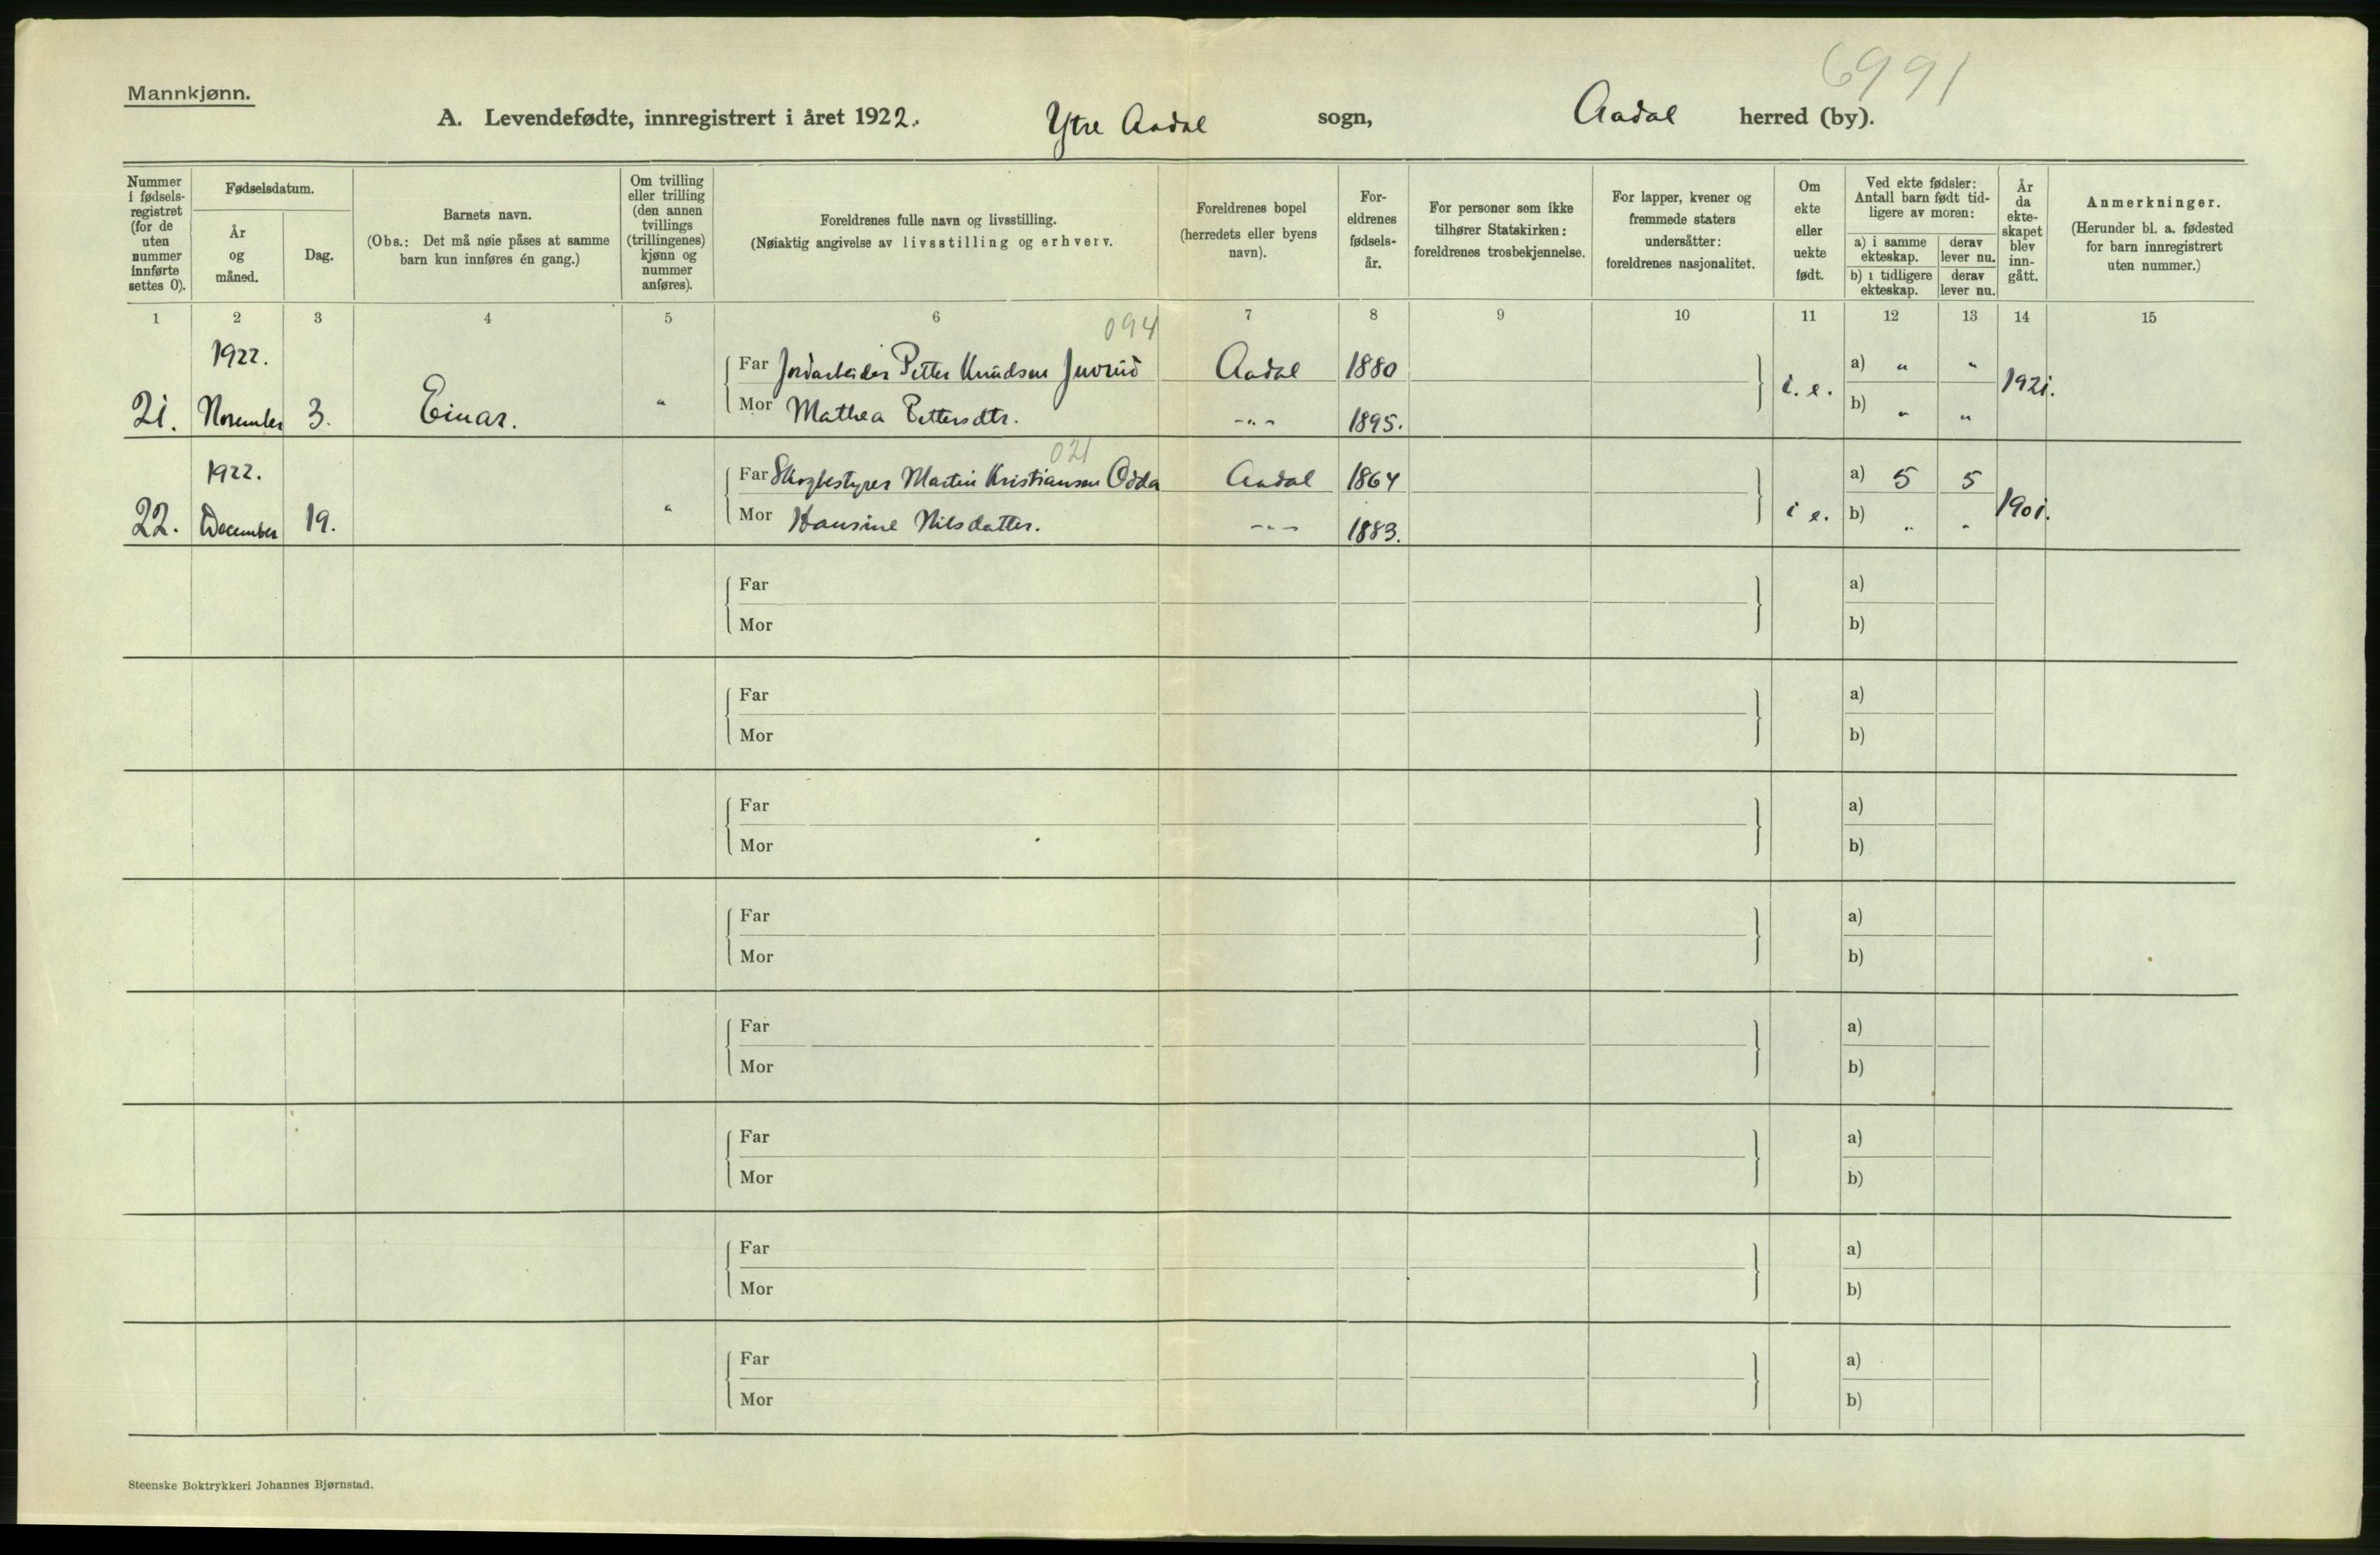 6991
Mannkjønn.
A. Levendefødte, innregistrert i året 1922. Ytre Aadal sogn, Aadal herred (by).
Nummer i fødsels-registret (for de uten nummer innførte settes 0).
Fødselsdatum.
År og måned.
Dag.
Barnets navn.
(Obs.: Det må nøie påses at samme barn kun innføres én gang.)
Om tvilling eller trilling (den annen tvillings (trillingenes) kjønn og nummer anføres).
Foreldrenes fulle navn og livsstilling.
(Nøiaktig angivelse av livsstilling og erhverv.
Foreldrenes bopel (herredets eller byens navn).
For-eldrenes fødsels-år.
For personer som ikke tilhører Statskirken: foreldrenes trosbekjennelse.
For lapper, kvener og fremmede staters undersåtter: foreldrenes nasjonalitet.
Om ekte eller uekte født.
Ved ekte fødsler: Antall barn født tid-ligere av moren:
a) i samme ekteskap.
derav lever nu.
b) i tidligere ekteskap.
derav lever nu.
År da ekte-skapet blev inn-gått.
Anmerkninger.
(Herunder bl. a. fødested for barn innregistrert uten nummer.)
1 2 3 4 5 6 7 8 9 10 11 12 13 14 15
094
1922.
Far Jordarbeider Petter Knudsen Aadal 1880 a) " "
21. November 3. Einar. " Mor Mathea Pettersdtr. -"- 1895. i. e. b) " " 1921.
021
1922.
Far Skogbestyrer Martin Kristiansen Odda Aadal 1864 a) 5 5
22. December 19. " Mor Hansine Nilsdatter. -"- 1883. i e. b) " " 1901.
Far a)
Mor b)
Far a)
Mor b)
Far a)
Mor b)
Far a)
Mor b)
Far a)
Mor b)
Far a)
Mor b)
Far a)
Mor b)
Far a)
Mor b)
Steenske Boktrykkeri Johannes Bjørnstad.